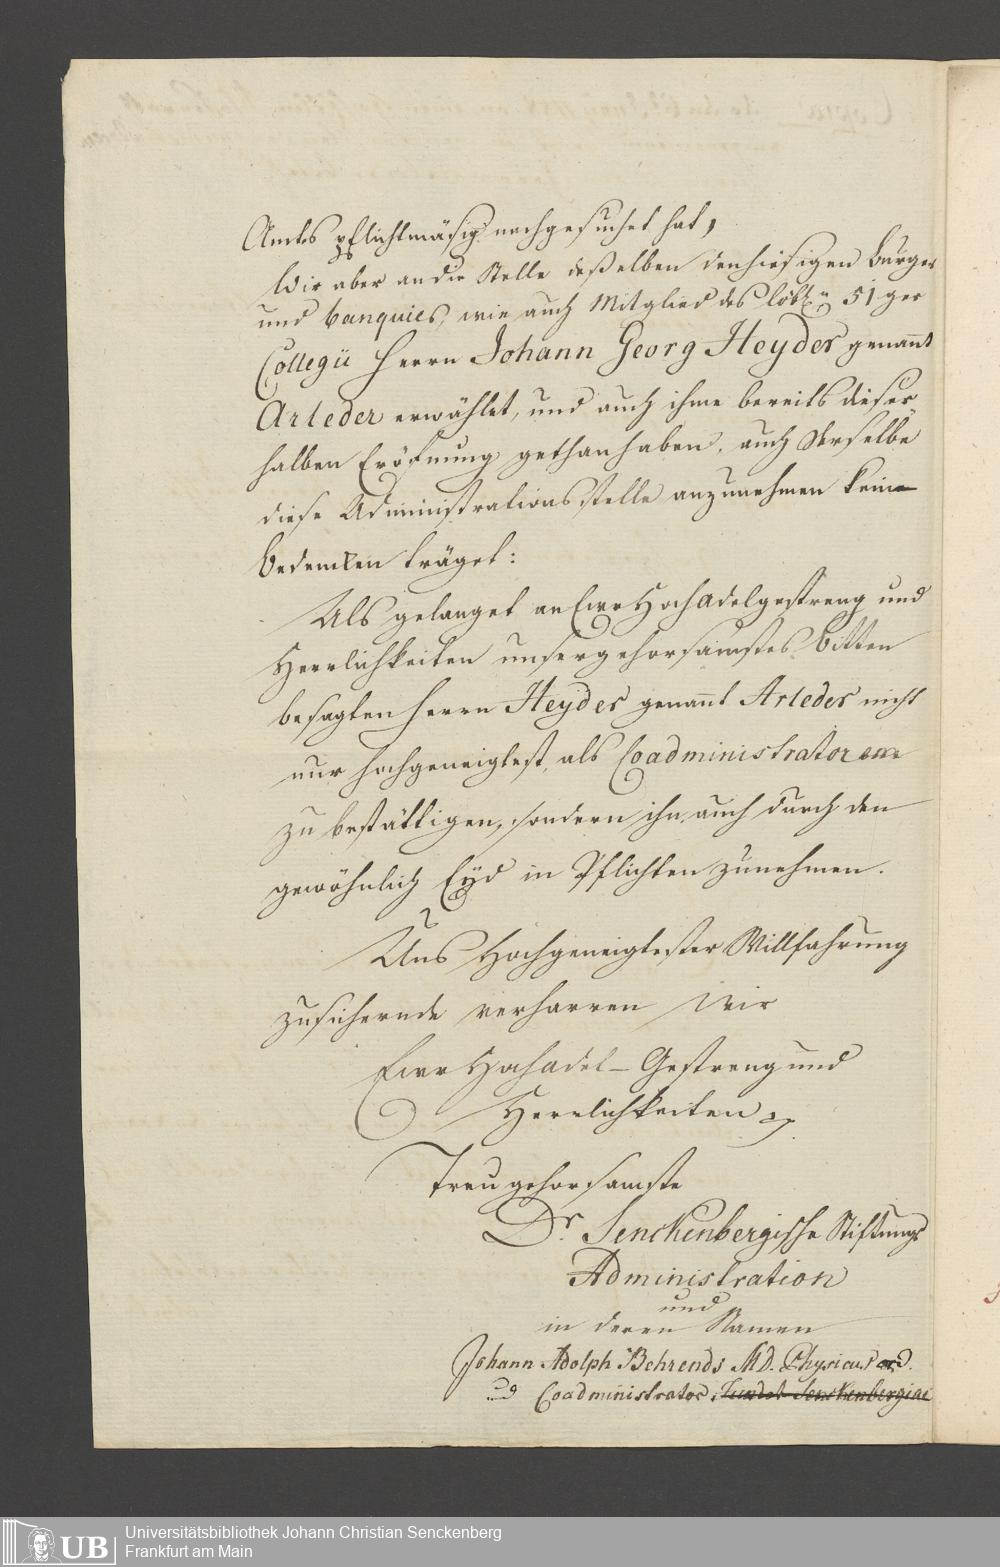 Amtes pflichtmäsig nachgesuchet hat,
Wir aber an die Stelle deßelben den hiesigen Burger
und banquier, wie auch Mitglied des löbl. 51 ger
Collegii Herrn Johann Georg Heyder genant
Arleder erwählet, und auch ihme bereits dieser
halben Eröfnung gethan haben, auch derselbe
diese Administrations stelle anzunehmen kein
bedencken träget:
Als gelanget an Ewr HochAdelgestreng und
Herrlichkeiten unser gehorsamstes bitten
besagten Herrn Heyder genant Arleder nicht
nur hochgeneigtest als Coadministratorem
zu bestättigen, sondern ihn auch durch den
gewöhnlich Eyd in Pflichten zunehmen.
Uns Hochgeneigtester Willfahrung
zusichernde verharren wir
Ewr Hochadel-Gestreng und
Herrlichkeiten
Treu gehorsamste
Dr. Senckenbergische Stiftungs
Administration
und
in deren Namen
Johann Adolph Behrends MD. Physicus ord.
und Coadministrator. Fundat. Senckenbergianae
UB
Universitätsbibliothek Johann Christian Senckenberg
Frankfurt am Main